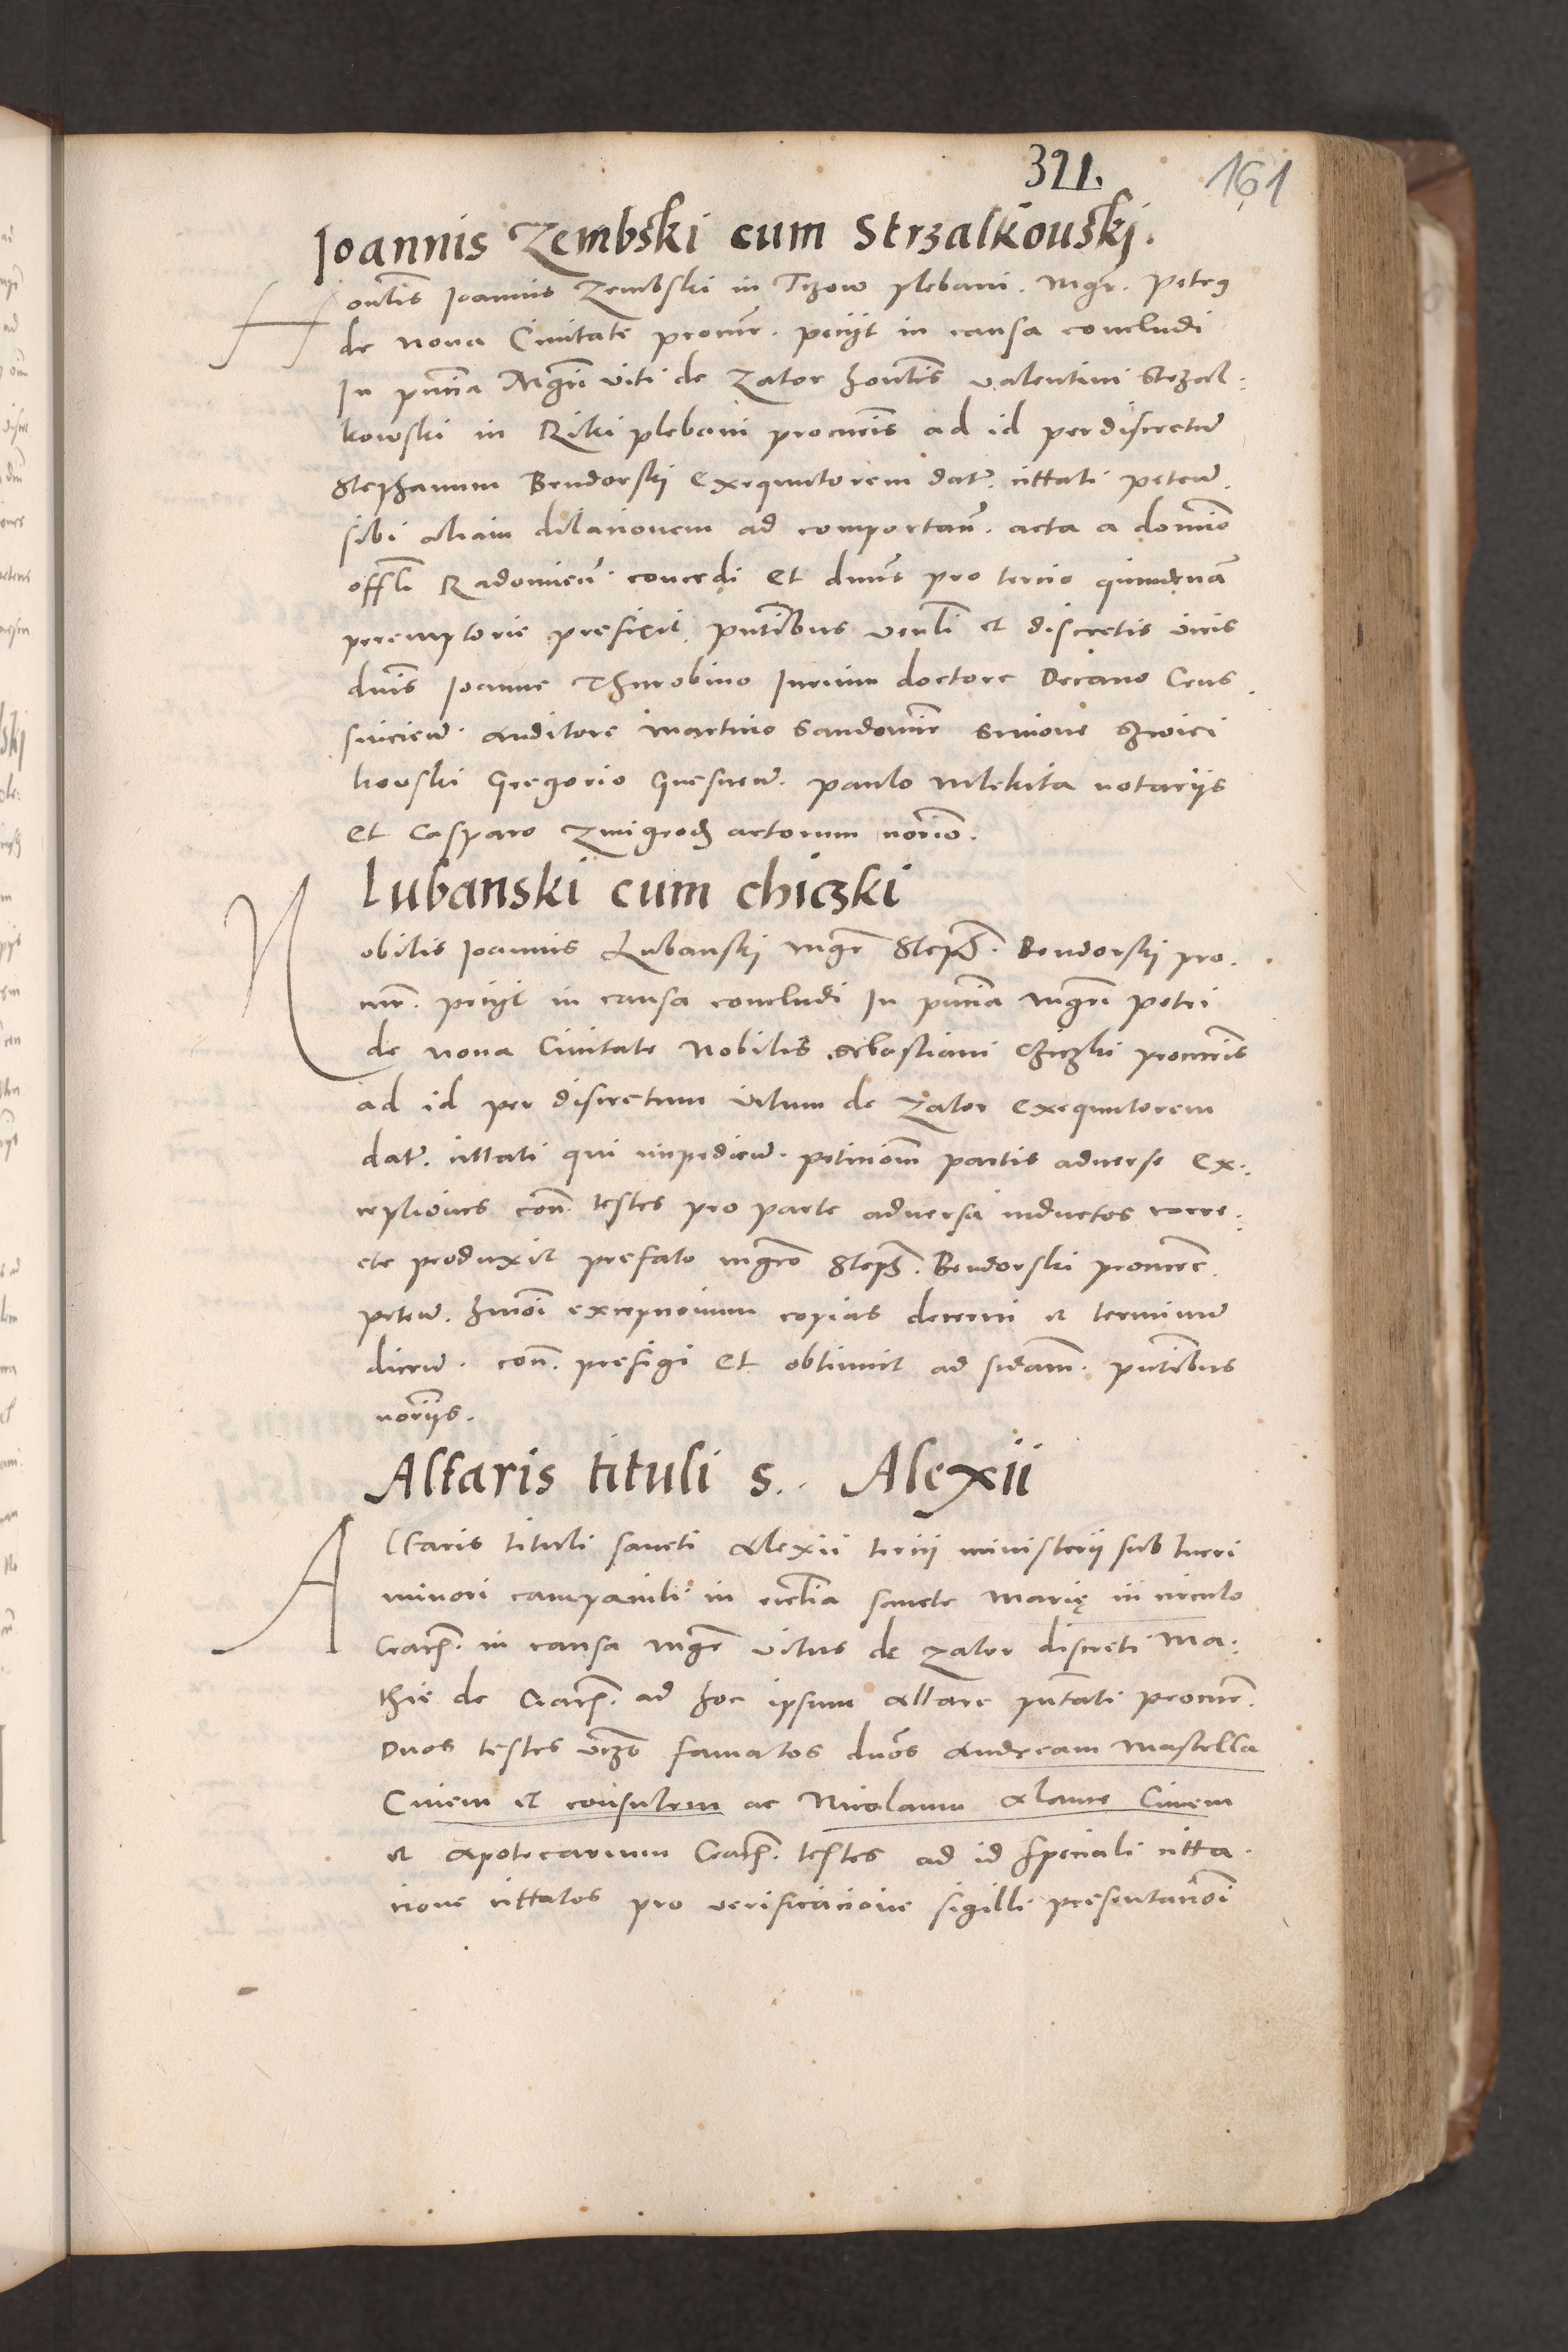 321.
161
Joannis Zembski cum Strzalkouskj.
Honlis Joannis Zembski in Tczow plebani. Mgr. Petrus
de Noua Ciuitate procur. peciit in causa concludi
In pncia Mgri Viti de Zator honlis Valentini Strzal:
kowski in Riki plebani procuris ad id per discretum
Stephanum Bendorskj Exequutorem dat. cittati peteñ.
sibi aliam dilacionem ad comportañ. acta a domino
offli Radomień. concedi Et dnus pro tercio quindenam
peremptorie prefixit. pntibus venli et discretis viris
dnis Joanne Thurobino Jurium doctore Decano Crus
suicień. Auditore Martino Sandomir Simone
kowski Gregorio Gnesneñ. Paulo Mlekita notariis
Et Casparo Zmigrodz actorum norio.
Lubanski cum chiczki
Nobilis Joannis Lubanskj Mgr Steph. Bendorskj pro.
cur. peciit in causa concludi In pncia Mgri Petri
de Noua Ciuitate Nobilis Sebastiani Chiczki procuris
ad id per discretum Vitum de Zator Exequutorem
dat. cittati qui impedień. peticionem partis aduerse Ex:
ceptiones con. testes pro parte aduersa inductos
produxit prefato mgro Steph. Bendorski procure.
peteñ. hmoi excepcionum copias decerni et terminum
diceñ. con. prefigi Et obtinuit ad sidam. pntibus
noriis.
Altaris tituli s. Alexii
Altaris tituli sancti Alexii tercii ministerii sub turri
minori campanili in ecclia sancte Marię in circulo
Crach. in causa mgr Vitus de Zator discreti Ma:
thie de Crach. ad hoc ipsum Altare pntati procur.
Duos testes vczt famatos dnos Andream Mastella
Ciuem et consulem ac Nicolaum Alantse Ciuem
et Apotecarium Crach. testes ad id speciali citta
cione cittatos pro verificacione sigilli presentacioni